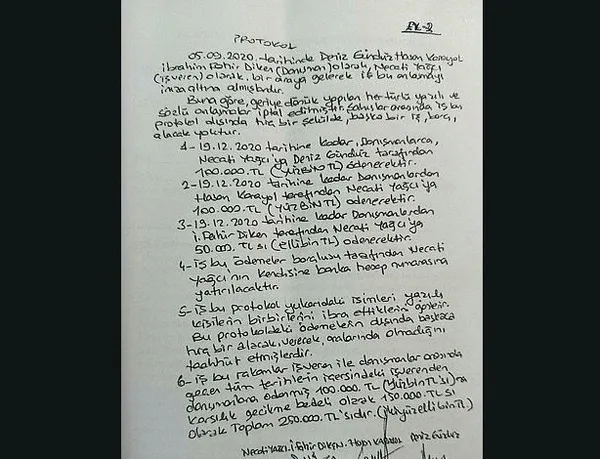 EK-2
PROTOKOL
05.09.2020 tarihinde Deniz Gündüz Hasan Karayol
İbrahim Fahir Diken (Danışman) olarak, Necati Yağcı
(işveren) olarak, bir araya gelerek iş bu anlaşmayı
imza altına almışlardır.
Buna göre, geriye dönük yapılan her türlü yazılı ve
sözlü anlaşmalar iptal edilmiştir. Şahıslar arasında iş bu
protokol dışında hiç bir şekilde, başka bir iş, borç,
alacak yoktur.
1-19.12.2020 tarihine kadar, Danışmanlarca,
Necati Yağcı'ya Deniz Gündüz tarafından
100.000.TL (YÜZBİNTL) ödenecektir.
2-19.12.2020 tarihine kadar Danışmanlardan
Hasan Karayol tarafından Necati Yağcı'ya
100.000.TL (YÜZBİNTL) ödenecektir.
3-19.12.2020 tarihine kadar Danışmanlardan
İ.Fahir Diken tarafından Necati Yağcı'ya
50.000.TL sı (ellibinTL) ödenecektir.
4-iş bu ödemeler borçlusu tarafından Necati
Yağcı'nın kendisine banka hesap numarasına
yatırılacaktır.
5-iş bu protokol yukarıdaki isimleri yazılı
kişilerin birbirlerini ibra ettiklerini gösterir.
Bu protokoldeki ödemelerin dışında başkaca
hiç bir alacak, verecek, aralarında olmadığını
taahhüt etmişlerdir.
6-iş bu rakamlar işveren ile danışmanlar arasında
geçen tüm tarihlerin içersindeki işverenden
danışmanlara ödenmiş 100.000.TL (YüzbinTL'si)na
karşılık gecikme bedeli olarak 150.000.TL sı
olarak Toplam 250.000.TL'sıdır. (ikiyüzellibinTL)
Necati Yağcı İ.Fahir DİKEN Hasan KARAYOL Deniz Gündüz